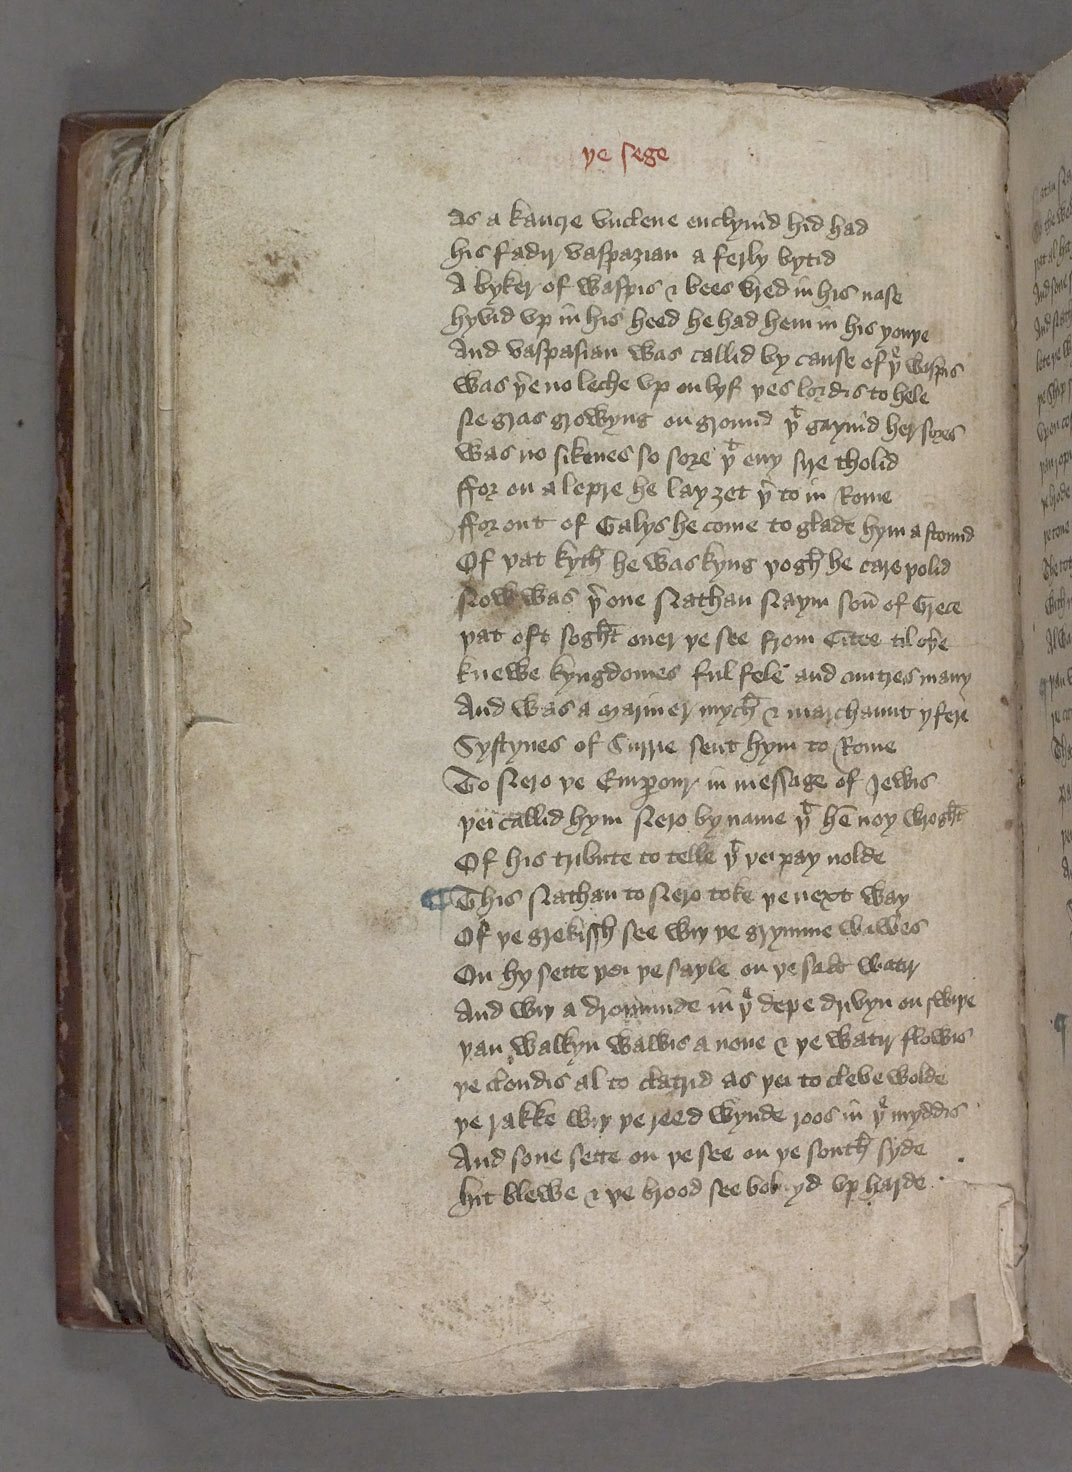 ye sege
As a kancre vnclene enclynid hid had
his fadir vaspazian a ferly bytid
A byker of waspis & bees bred in his nase
hyvid vp in his heed he had hem in his youye
And vaspasian was callid by cause of yͤ waspis
was yͤre no leche vp on lyf yes lordis to hele
Ne gras growyng on ground yͭ gaynid her sores
was no sikenes so sore yͭ eny sire tholid
ffor on a lepre he lay zet yͬ to in Rome
ffor out of Galys he come to glade hym a stound
Of yat kyth he was kyng yogh he care yolid
Now was yͬ one Nathan Naym son of Grece
yat oft soght ouer ye see from Citee til oyͬe
knewe kyngdomes ful fele and cuntres many
And was a mariner mych & marchaunt yfere
Systynes of Surrie sent hym to Rome
To Nero ye Emperour in message of Jewis
yei callid hym Nero by name yͭ hem noy wroght
Of his tribute to telle yͭ yei pay nolde
¶ This Nathan to Nero toke ye next way
Of ye grekissh see wiy ye grymme wawes
On hy sette yei ye sayle on ye salt watir
And wiy a dromunde in yͤ depe drivyn on swiye
yan walkyn walwis a none & ye watir flowis
ye cloudis al to clatrid as yei to cleve wolde
ye rakke wiy ye reed wynde roos in yͤ myddis
And sone sette on ye see on ye south syde
hit blewe & ye brood see vp harde